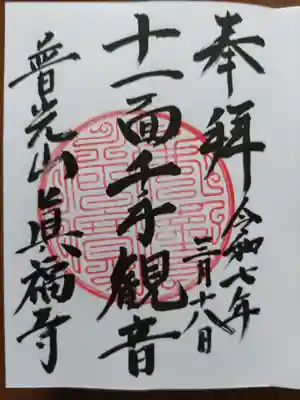 奉拝
令和七年
三月十八日
十一面千手観音
普光山真福寺